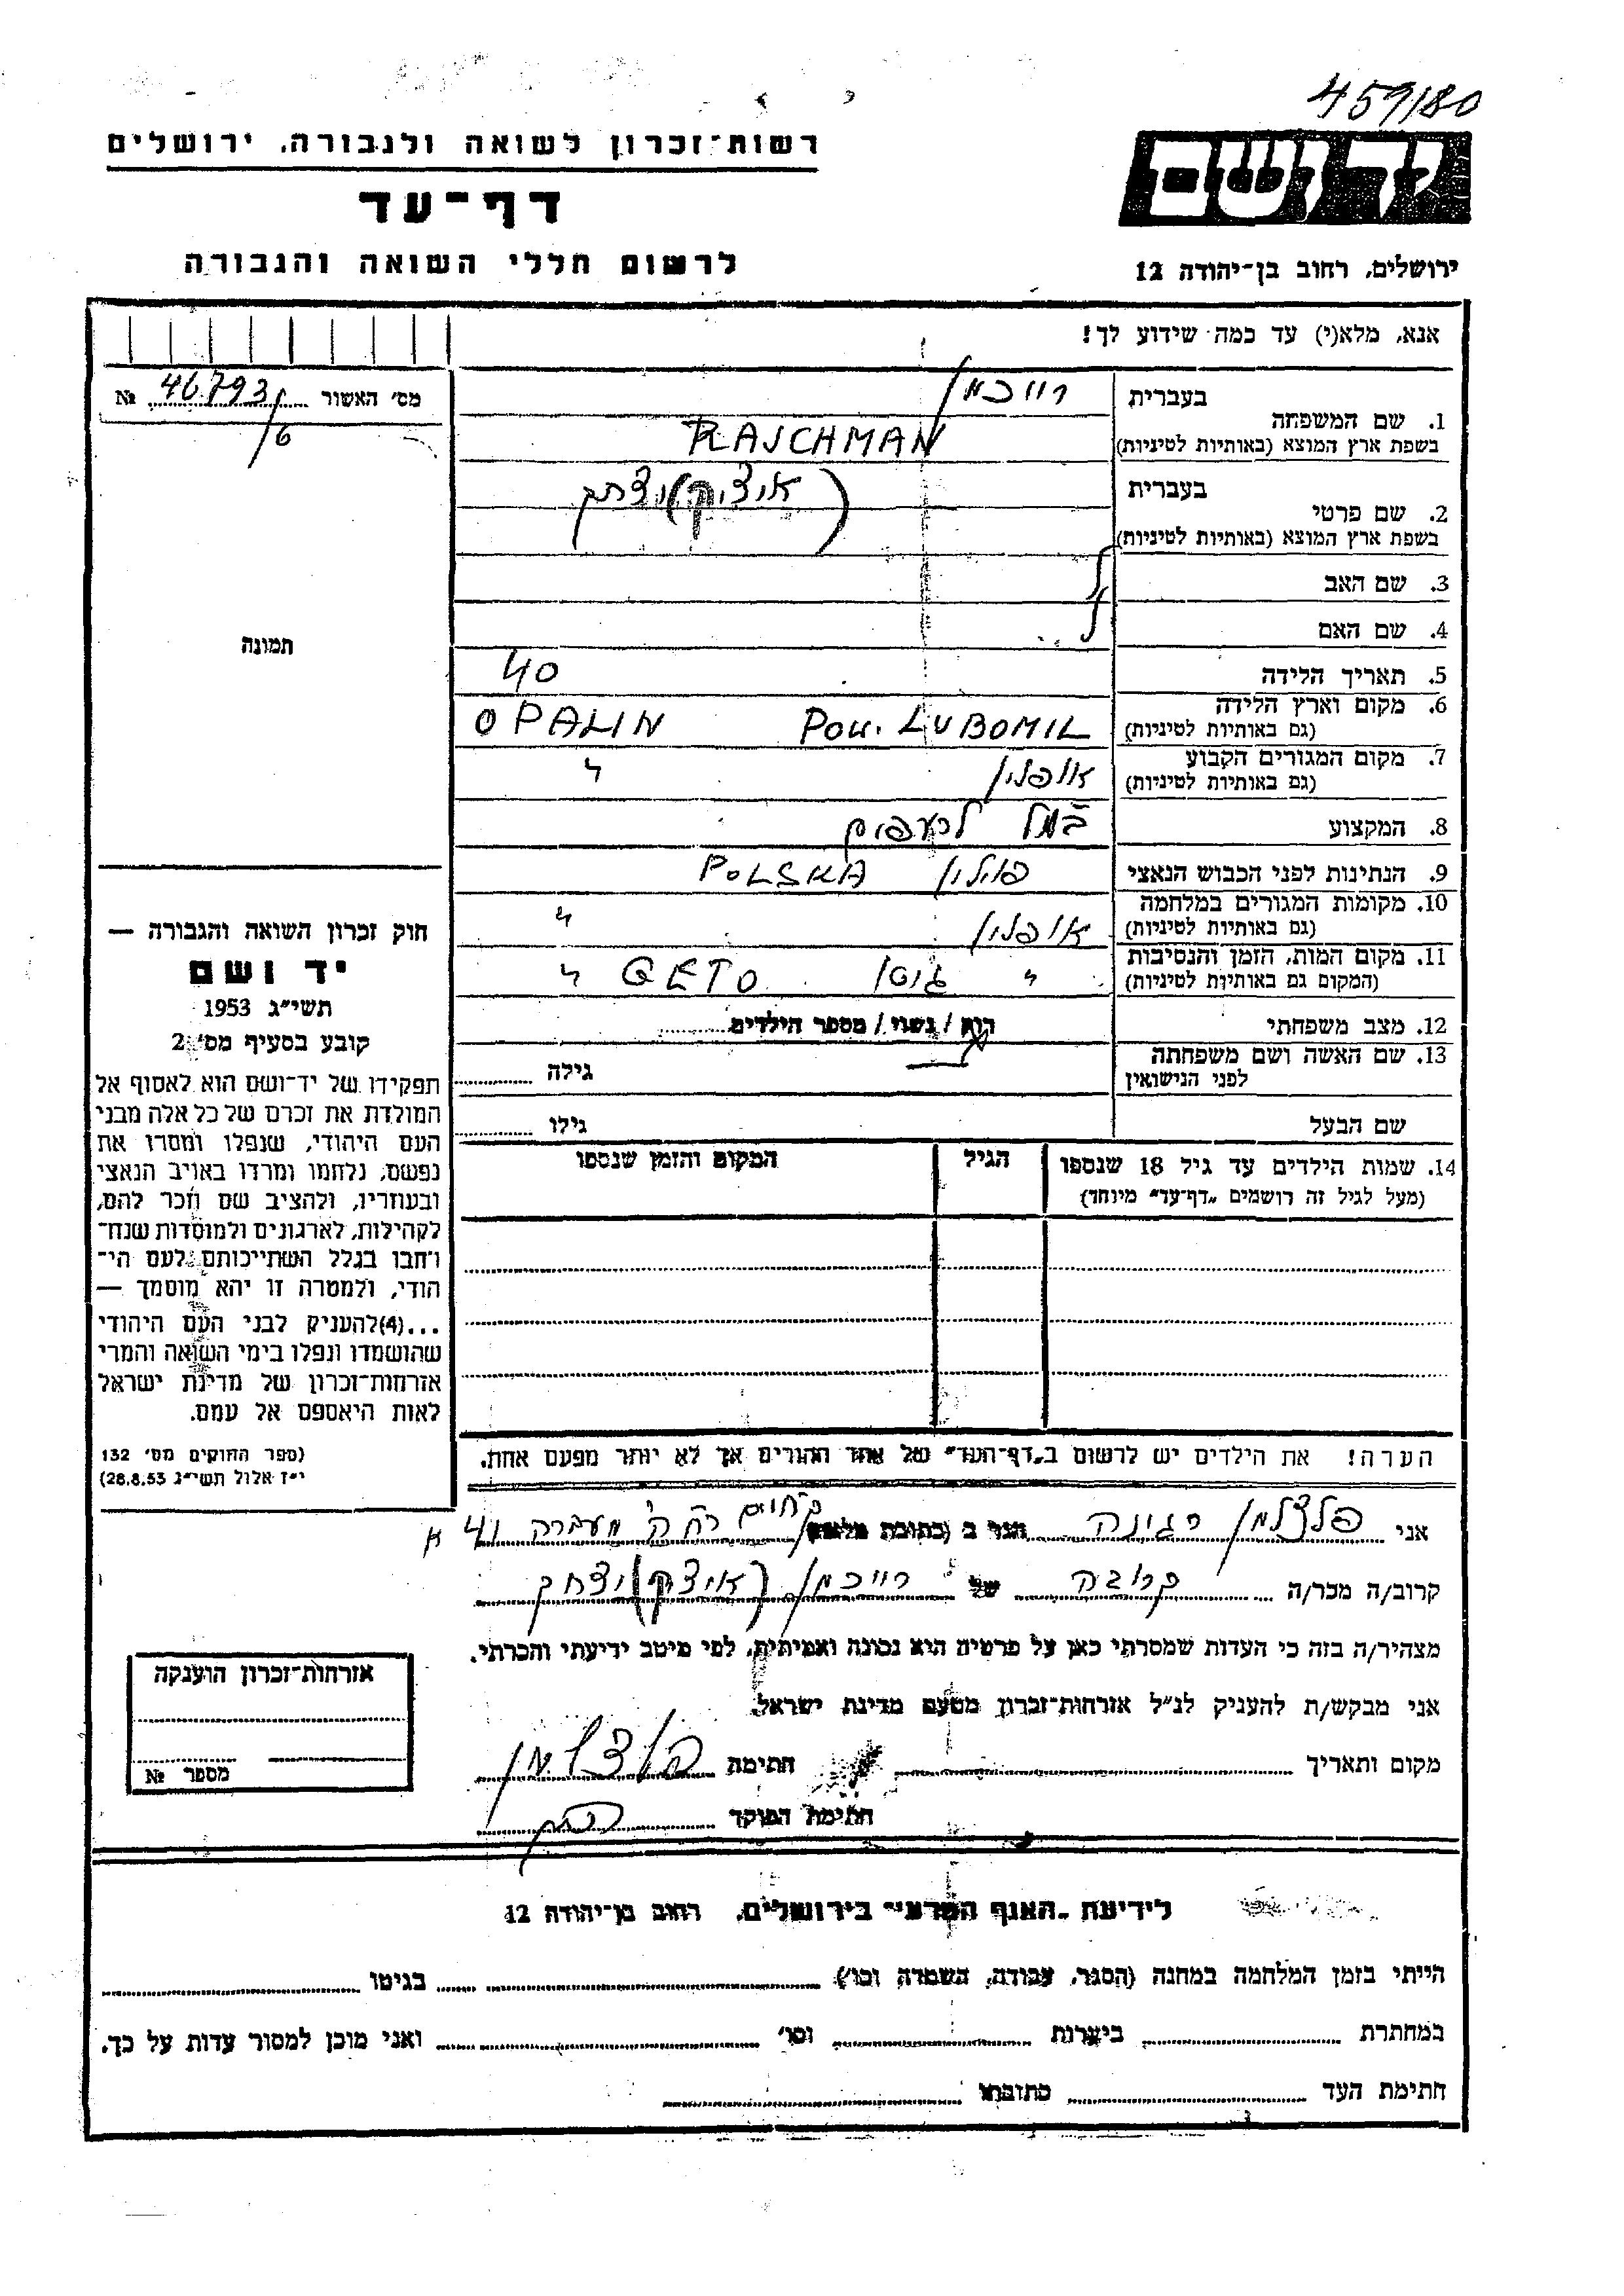 459/80
רשות־זכרון לשואה ולגבורה, ירושלים
יד ושם
דף־עד
לרשום חללי השואה והגבורה
ירושלים, רחוב בן־יהודה 12
אנא, מלא(י) עד כמה שידוע לך!
מס׳ האשור 46793/6 №
1. שם המשפחה
בעברית רייכמן
בשפת ארץ המוצא (באותיות לטיניות) RAJCHMAN
2. שם פרטי
בעברית (איציק) יצחק
בשפת ארץ המוצא (באותיות לטיניות)
3. שם האב
4. שם האם
5. תאריך הלידה 40
6. מקום וארץ הלידה
(גם באותיות לטיניות) OPALIN POW. LUBOMIL
7. מקום המגורים הקבוע
(גם באותיות לטיניות) אופלין "
8. המקצוע
9. הנתינות לפני הכבוש הנאצי פולין POLSKA
10. מקומות המגורים במלחמה
(גם באותיות לטיניות) אופלין "
11. מקום המות, הזמן והנסיבות
(המקום גם באותיות לטיניות) " גיטו GETO "
12. מצב משפחתי רווק / נשוי / מספר הילדים
13. שם האשה ושם משפחתה
לפני הנישואין גילה
שם הבעל גילו
14. שמות הילדים עד גיל 18 שנספו הגיל המקום והזמן שנספו
(מעל לגיל זה רושמים „דף־עד" מיוחד)
הערה! את הילדים יש לרשום ב„דף־העד" של אחד ההורים אך לא יותר מפעם אחת.
תמונה
חוק זכרון השואה והגבורה —
יד ושם
תשי״ג 1953
קובע בסעיף מס׳ 2
תפקידו של יד־ושם הוא לאסוף אל
המולדת את זכרם של כל אלה מבני
העם היהודי, שנפלו ומסרו את
נפשם, נלחמו ומרדו באויב הנאצי
ובעוזריו, ולהציב שם וזכר להם,
לקהילות, לארגונים ולמוסדות שנח־
רבו בגלל השתייכותם לעם הי־
הודי, ולמטרה זו יהא מוסמך —
...(4)להעניק לבני העם היהודי
שהושמדו ונפלו בימי השואה והמרי
אזרחות־זכרון של מדינת ישראל
לאות היאספם אל עמם.
(ספר החוקים מס׳ 132
י״ז אלול תשי״ג 28.8.53)
אני פלצלמן רגינה הגר ב (כתובת מלאה) מעברה 41 א
קרוב/ה מכר/ה קרובה של רייכמן (איציק) יצחק
מצהיר/ה בזה כי העדות שמסרתי כאן על פרטיה היא נכונה ואמיתית, לפי מיטב ידיעתי והכרתי.
אני מבקש/ת להעניק לנ״ל אזרחות־זכרון מטעם מדינת ישראל.
מקום ותאריך חתימה
חתימת הפוקד
אזרחות־זכרון הוענקה
מספר №
לידיעת „האגף המדעי" בירושלים, רחוב בן־יהודה 12
הייתי בזמן המלחמה במחנה (הסגר, עבודה, השמדה וכו׳) בגיטו
במחתרת ביערות וכו׳ ואני מוכן למסור עדות על כך.
חתימת העד כתובתו